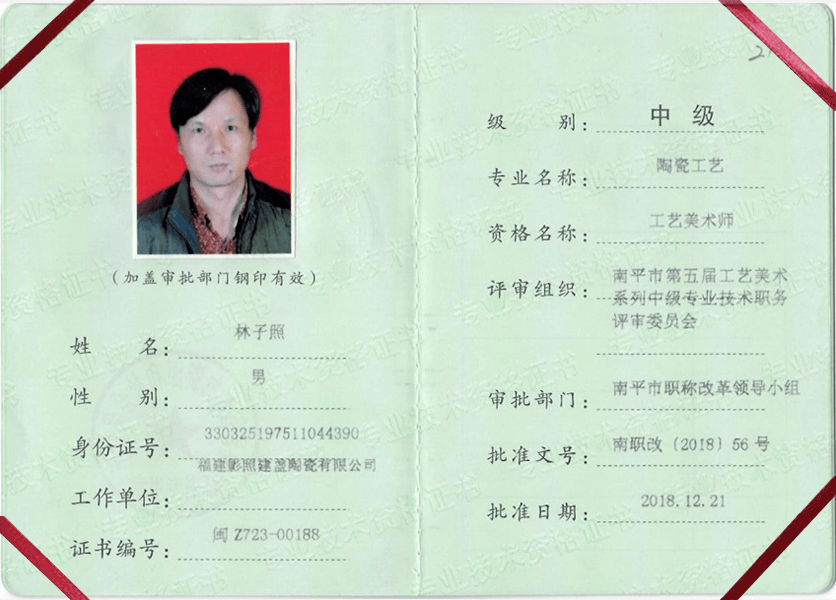 （加盖审批部门钢印有效）
姓 名： 林子照
性 别： 男
身份证号： 330325197511044390
工作单位： 福建影照建盏陶瓷有限公司
证书编号： 闽 Z723-00188
级 别： 中 级
专业名称： 陶瓷工艺
资格名称： 工艺美术师
评审组织： 南平市第五届工艺美术
系列中级专业技术职务
评审委员会
审批部门： 南平市职称改革领导小组
批准文号： 南职改〔2018〕56 号
批准日期： 2018.12.21